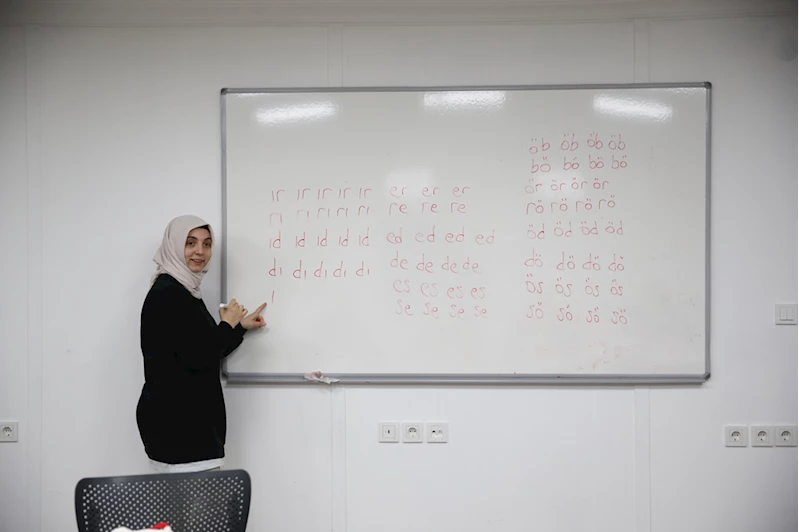 ır ır ır ır ır
rı rı rı rı rı
ıd ıd ıd ıd ıd
dı dı dı dı dı
ı
er er er
re re re
ed ed ed ed
de de de de
es es es es
se se se se
öb öb öb öb
bö bö bö bö
ör ör ör ör
rö rö rö rö
öd öd öd öd
dö dö dö dö
ös ös ös ös
sö sö sö sö